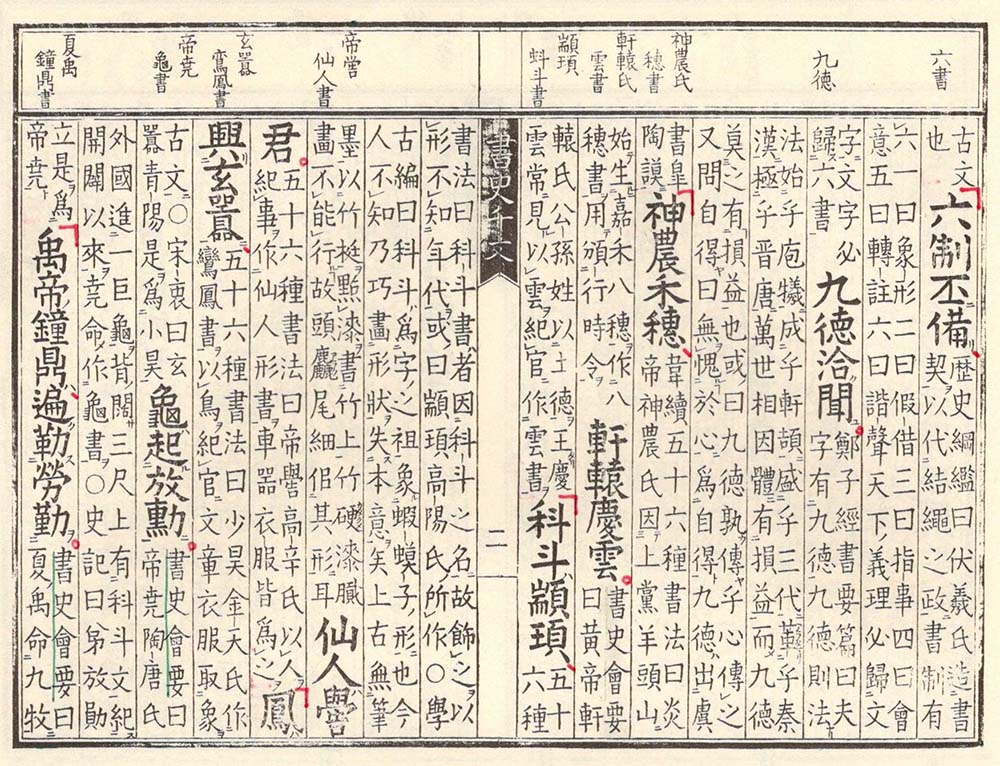 六書
九徳
神農氏
穗書
軒轅氏
雲書
顓頊
蚪斗書
帝嚳
仙人書
玄囂
鸞鳳書
帝尭
龜書
夏禹
鐘鼎書
古文
也
六制丕備
歴史綱鑑曰伏羲氏造書
契以代結繩之政書制有
六一曰象形二曰假借三曰指事四曰會
意五曰轉註六曰諧聲天下義理必歸文
字文字必
歸六書
九徳洽聞
鄭子經書要篇曰夫
字有九徳九徳則法
法始乎庖犧成乎軒頡盛乎三代革乎秦
漢極乎晉唐萬世相因體有損益而九徳
莫之有損益也或曰九徳孰傳乎心傳之
又問自得曰無愧於心爲自得九徳出虞
書皐
陶謨
神農禾穗
韋續五十六種書法曰炎
帝神農氏因上黨羊頭山
始生嘉禾八穗作八
穗書用頒行時令
軒轅慶雲
書史會要
曰黄帝軒
轅氏公孫姓以土徳王慶
雲常見以雲紀官作雲書
科斗顓頊
五十
六種
書史千文
二
書法曰科斗書者因科斗之名故飾之以
形不知年代或曰顓頊高陽氏所作○學
古編曰科斗爲字之祖象蝦蟆子形也今
人不知乃巧畫形狀失本意矣上古無筆
墨以竹梃點漆書竹上竹硬漆膩
畫不能行故頭麤尾細佀其形耳
仙人嚳
君
五十六種書法曰帝嚳高辛氏以人
紀事作仙人形書車器衣服皆爲之
鳳
興玄囂
五十六種書法曰少昊金天氏作
鸞鳳書以鳥紀官文章衣服取象
古文○宋衷曰玄
囂青陽是爲小昊
龜起放勳
書史會要曰
帝尭陶唐氏
外國進一巨龜背闊三尺上有科斗文紀
開闢以來尭命作龜書○史記曰弟放勛
立是爲
帝尭
禹帝鐘鼎遍勒勞勤
書史會要曰
夏禹命九牧